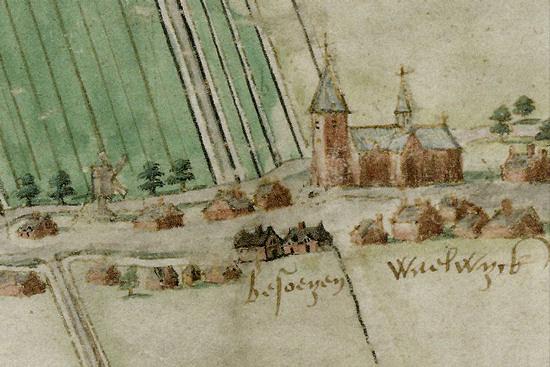 besoeyen
Waelwyck